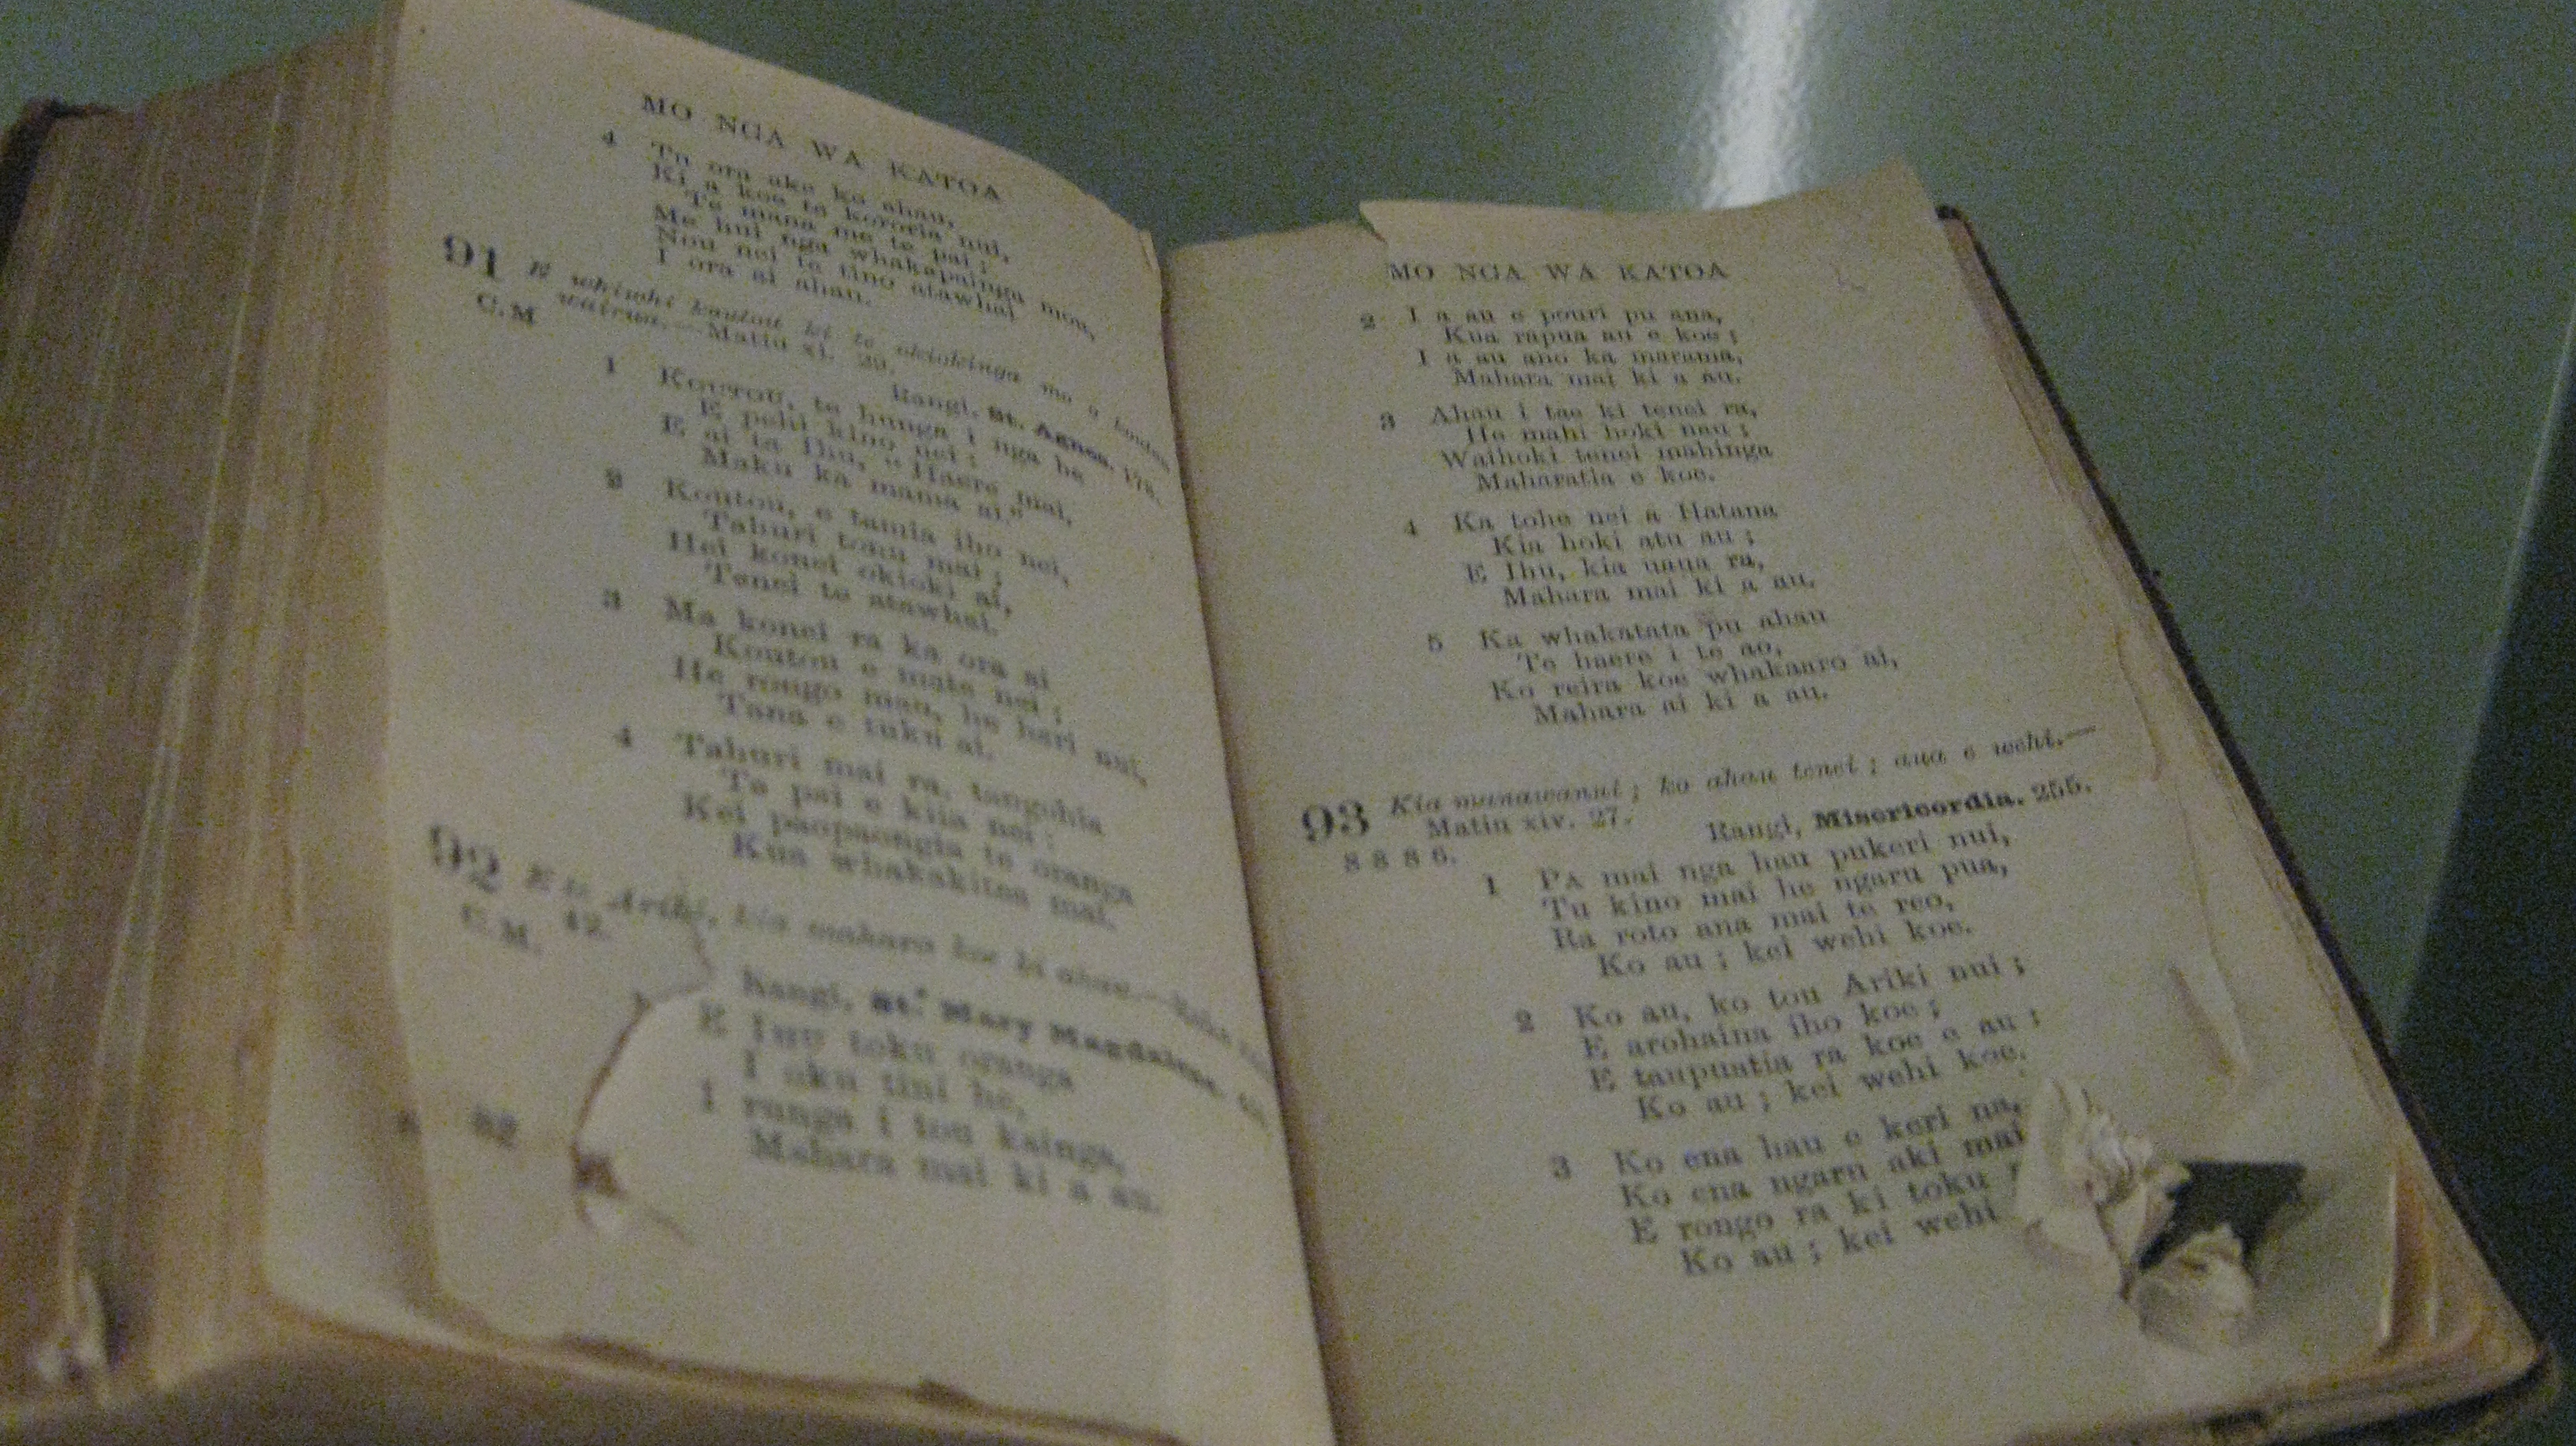 MO NGA WA KATOA
4 To ora ake ko ahau,
Ki a koe te kororia nui,
Te mana me te pai;
Me hui nga whakapainga mou,
Nou nei te tino atawhai
I ora ai ahau.
91 E whiwhi koutou ki te okiokinga mo o koutou
wairua.—Matiu xi. 29.
C.M
Rangi, St. Agnes. 178.
1 KOUTOU, te hunga i nga he
E pehi kino nei;
E ai ta Ihu, "Haere mai,
Maku ka mama ai."
2 Koutou, e tamia iho nei,
Tahuri tonu mai;
Hei konei okioki ai,
Tenei te atawhai.
3 Ma konei ra ka ora ai
Koutou e mate nei;
He rongo mau, he hari nui,
Tana e tuku ai.
4 Tahuri mai ra, tangohia
Te pai e kiia nei;
Kei paopaongia te oranga
Kua whakakitea mai.
92 E te Ariki, kia mahara koe ki ahau.—
42.
C.M.
Rangi, St. Mary Magdalene.
E IHU toku oranga
I aku tini he,
I runga i tou kainga,
Mahara mai ki a au.
82
MO NGA WA KATOA
2 I a au e pouri pu ana,
Kua rapua au e koe;
I a au ano ka marama,
Mahara mai ki a au.
3 Ahau i tae ki tenei ra,
He mahi hoki nau;
Waihoki tenei mahinga
Maharatia e koe.
4 Ka tohe nei a Hatana
Kia hoki atu au;
E Ihu, kia uaua ra,
Mahara mai ki a au.
5 Ka whakatata pu ahau
Te haere i te ao,
Ko reira koe whakaaro ai,
Mahara ai ki a au.
93 Kia manawanui; ko ahau tenei; aua e wehi.—
Matiu xiv. 27.
8 8 8 6.
Rangi, Misericordia. 255.
1 PA mai nga hau pukeri nui,
Tu kino mai he ngaru pua,
Ra roto ana mai te reo,
Ko au; kei wehi koe.
2 Ko au, ko tou Ariki nui;
E arohaina iho koe;
E taupuatia ra koe e au;
Ko au; kei wehi koe.
3 Ko ena hau e keri na,
Ko ena ngaru aki mai
E rongo ra ki toku
Ko au; kei wehi